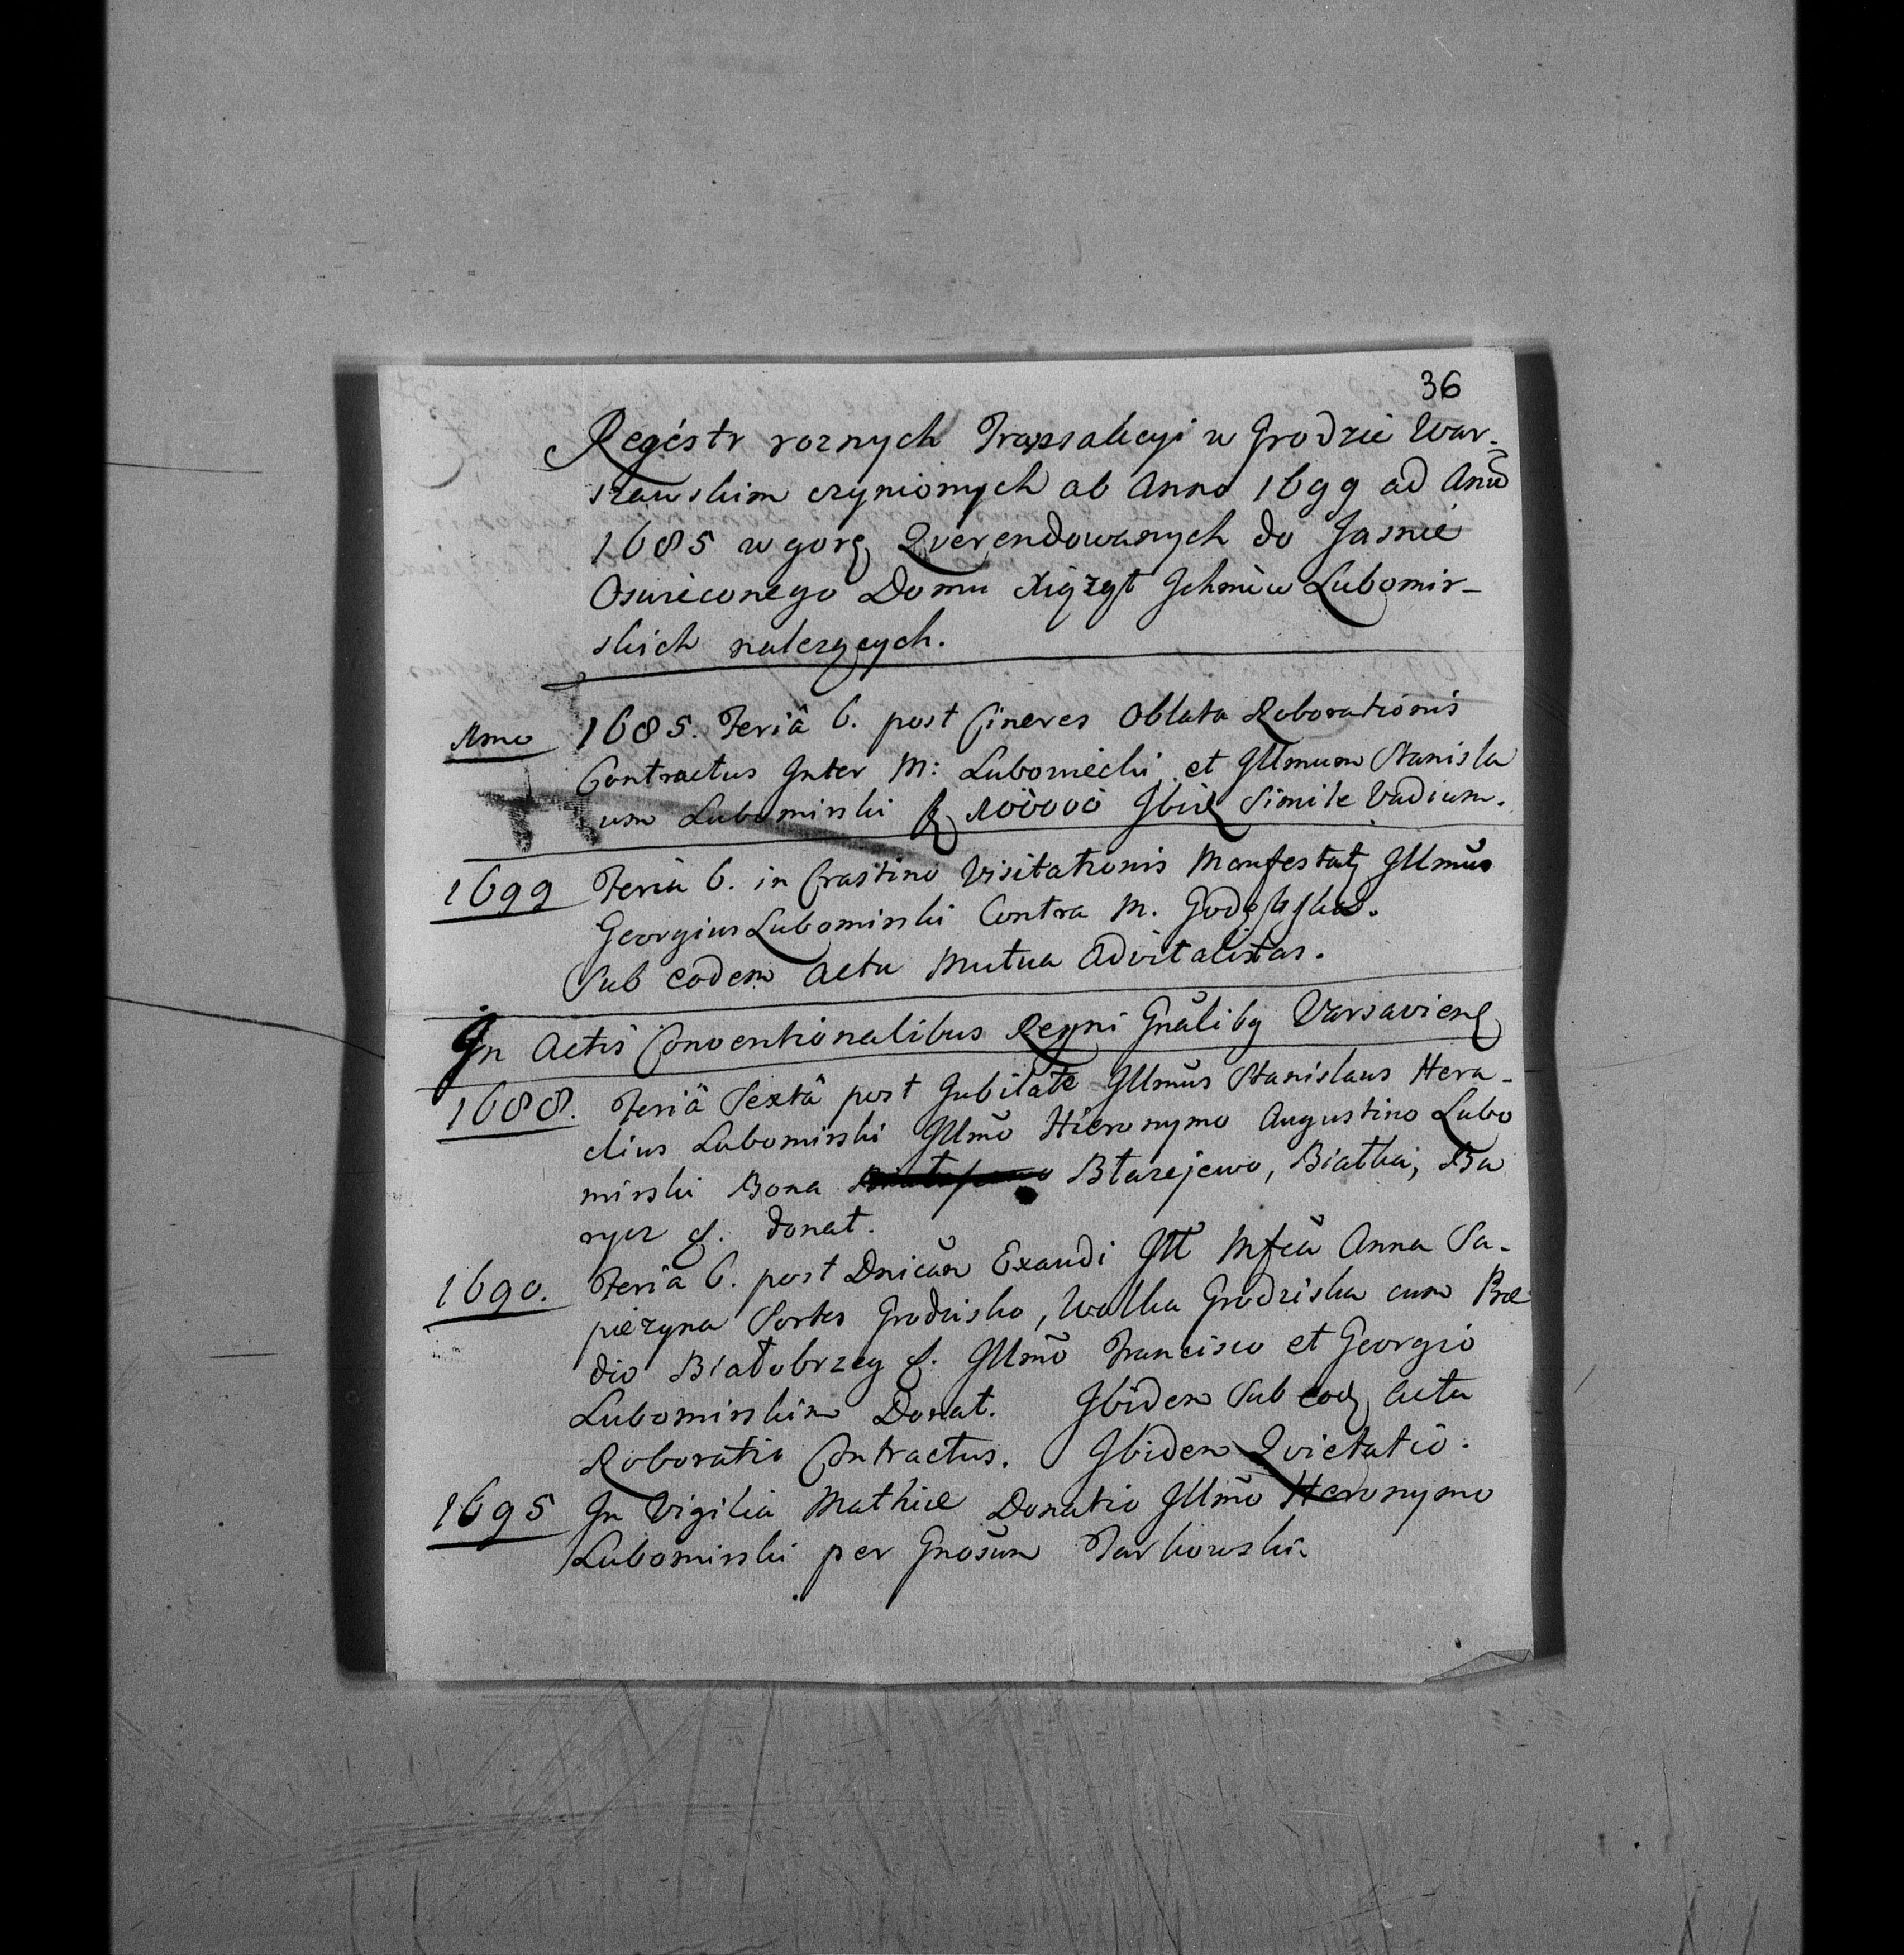 36
Regestr roznych Tranzakcyi w Grodzie War-
szawskim czynionych ab Anno 1699 ad Anũ
1685 w gorę Qverendowanych do Jasnie
Oswieconego Domu Xiążąt Jchmiów Lubomir-
skich nalezących.
Anno 1685. Feriâ 6. post Cineres Oblata Roborationis
Contractus Inter M: Lubomiecki et Illmum Stanisla
um Lubomirski 100000 Ibid Simile Vadium.
1699 Feria 6. in Crastino Visitationis Manfestat Illmũs
Georgius Lubomirski Contra M.
Sub eodem Actu Mutua Advitalitas.
In Actis Conventionalibus Regni Gñalibq Varsaviens
1688. Feriâ Sextâ post Jubilate Illmũs Stanislaus Hera-
clius Lubomirski Illmõ Hieronymo Augustino Lubo
mirski Bona Błazejewo, Białka, Ba
nycz &. donat.
1690. Feria 6. post Dnicãm Exaudi Ill Mfcã Anna Sa-
piezyna Sortes Grodzisko, Wolka Grodziska cum Præ
dio Białobrzegi &. Illmõ Francisco et Georgio
Lubomirskim Donat. Ibidem Sub eod Actu
Roboratio Contractus. Ibidem Qvietatio.
1695 In Vigilia Mathiæ Donatio Illmõ Heronymo
Lubomirski per Gnosum Tarkowski